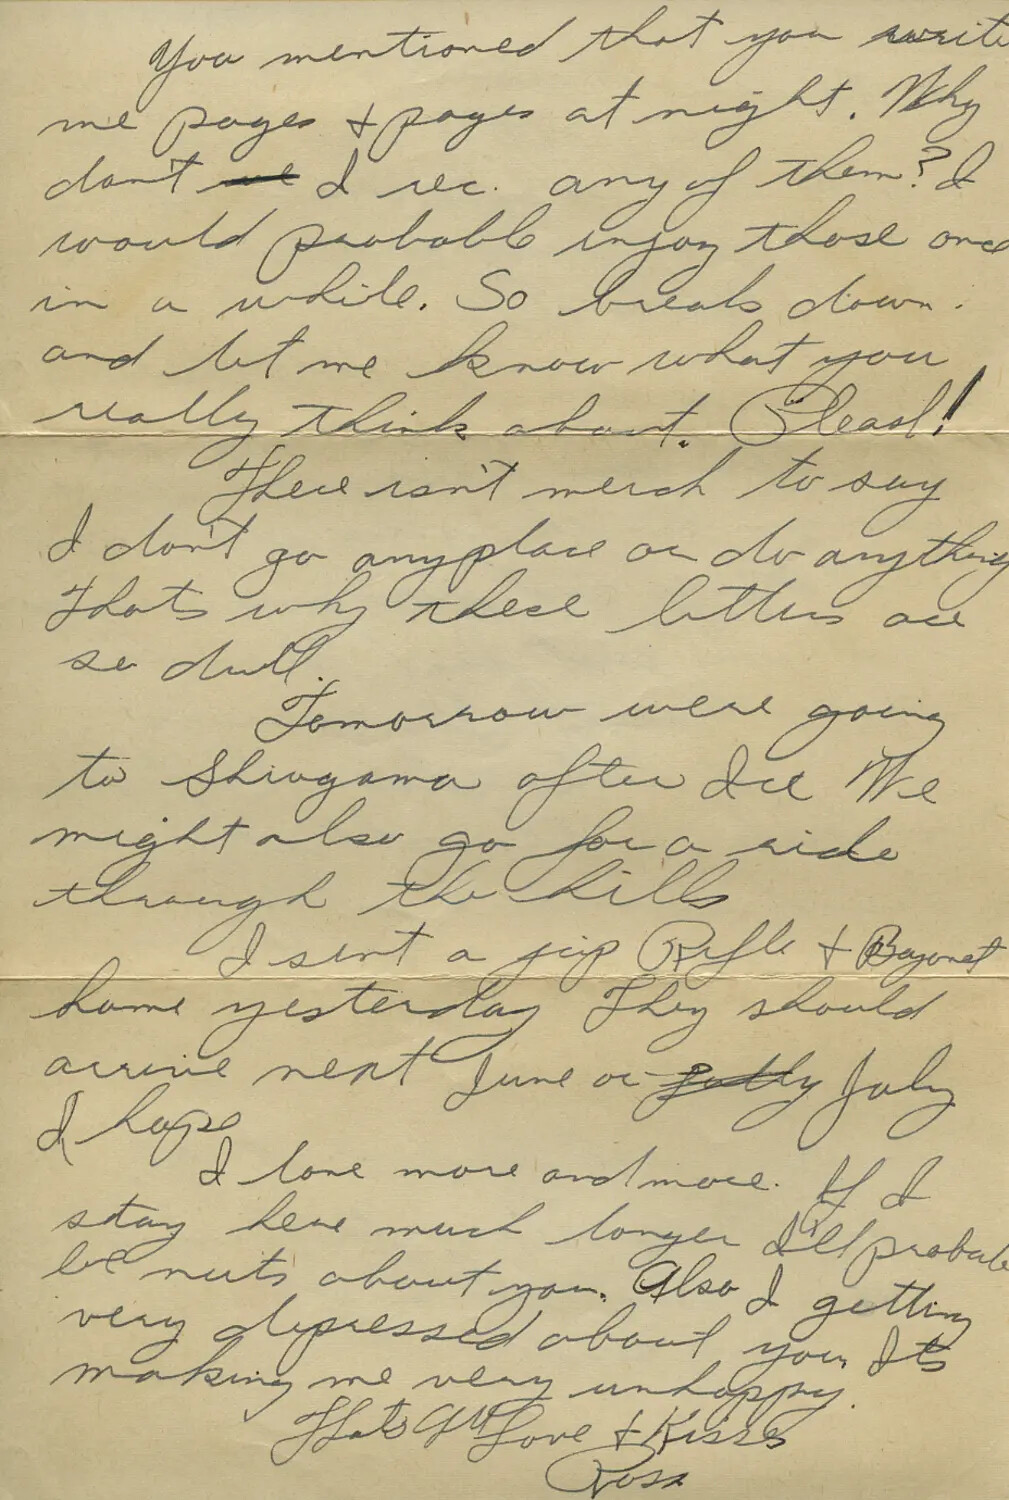 You mentioned that you write
me pages + pages at night. Why
don't we I rec. any of them? I
would probable injoy those once
in a while. So break down.
and let me know what you
really think about. Please!
There isn't much to say
I don't go anyplace or do anything
Thats why these letters are
so dull.
Tomorrow were going
to Shiogama after Ice We
might also go for a ride
through the hills
I sent a jap Rifle + Bayonet
home yesterday They should
arrive next June or July
I hope
I love more and more. If I
stay here much longer I'll probable
be nuts about you. Also I getting
very depressed about you. Its
making me very unhappy.
Thats All Love + Kisses
Ross